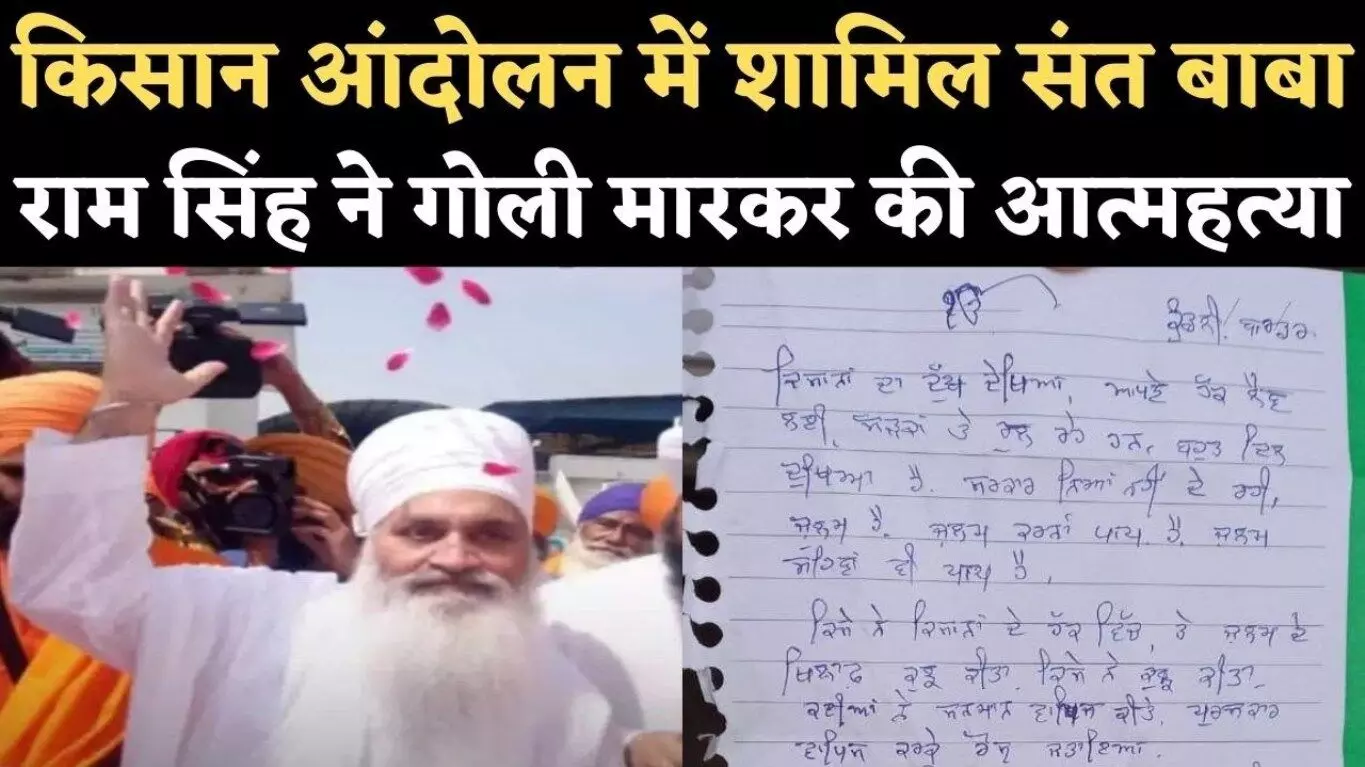 किसान आंदोलन में शामिल संत बाबा
राम सिंह ने गोली मारकर की आत्महत्या
ੴ
ਕੁੰਡਲੀ ਬਾਰਡਰ.
ਕਿਸਾਨਾਂ ਦਾ ਦੁੱਖ ਦੇਖਿਆ, ਆਪਣੇ ਹੱਕ ਲੈਣ
ਲਈ, ਸੜਕਾਂ ਤੇ ਰੁਲ ਰਹੇ ਹਨ, ਬਹੁਤ ਦਿਲ
ਦੁਖਿਆ ਹੈ. ਸਰਕਾਰ ਨਿਆਂ ਨਹੀਂ ਦੇ ਰਹੀ,
ਜੁਲਮ ਹੈ. ਜੁਲਮ ਕਰਨਾਂ ਪਾਪ ਹੈ, ਜੁਲਮ
ਸਹਿਣਾਂ ਵੀ ਪਾਪ ਹੈ,
ਕਿਸੇ ਨੇ ਕਿਸਾਨਾਂ ਦੇ ਹੱਕ ਵਿੱਚ, ਤੇ ਜੁਲਮ ਦੇ
ਖਿਲਾਫ਼ ਕੁਝ ਕੀਤਾ, ਕਿਸੇ ਨੇ ਕੁਝ ਕੀਤਾ,
ਕਈਆਂ ਨੇ ਸਨਮਾਨ ਵਾਪਿਸ ਕੀਤੇ, ਪੁਰਸਕਾਰ
ਵਾਪਿਸ ਕਰਕੇ ਰੋਸ ਜਤਾਇਆ.